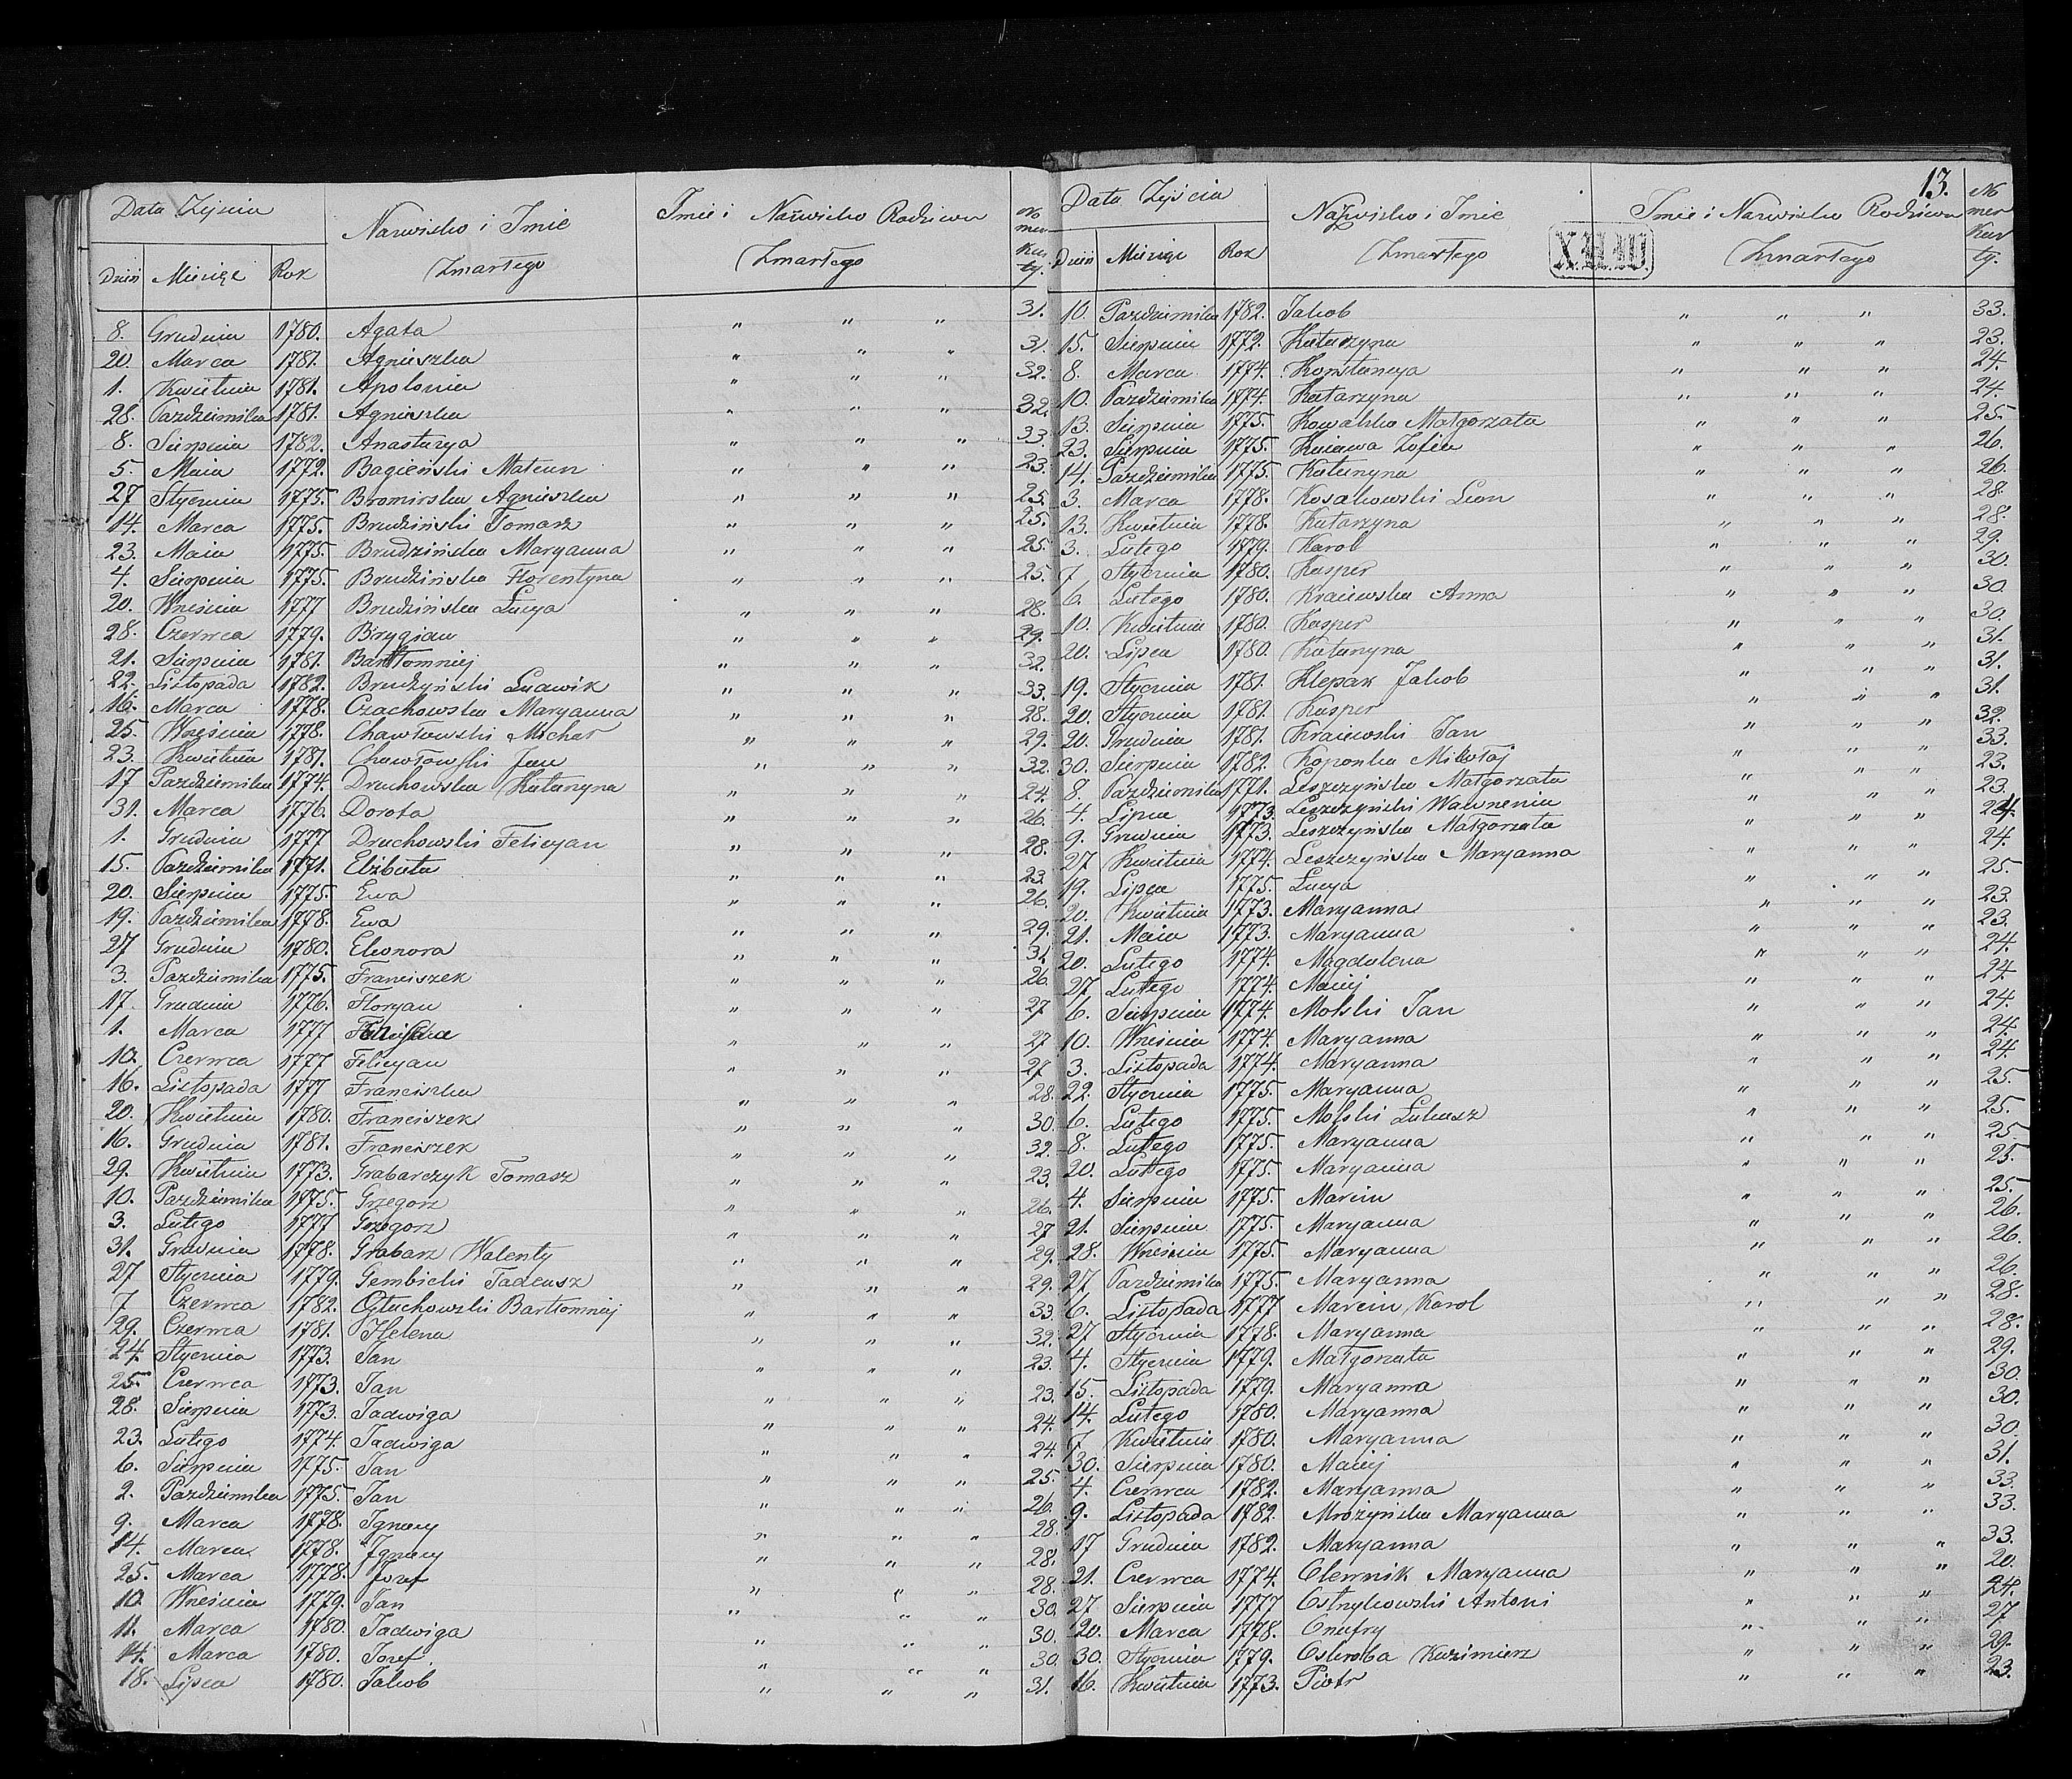 Data Zejścia
Nazwisko i Imie
Zmarłego
Imie i Nazwisko Rodziców
Zmarłego
No
mer
Kar
ty.
Dzień Miesiąc Rok
8. Grudnia 1780. Agata " " " 31.
20. Marca 1781. Agnieszka " " " 31.
1. Kwietnia 1781. Apolonia " " " 32.
28. Pazdziernika 1781. Agnieszka " " " 32.
8. Sierpnia 1782. Anastazya " " " 33.
5. Maia 1772. Bagieński Mateusz " " " 23.
27 Stycznia 1775. Bromirska Agnieszka " " " 25.
14. Marca 1775. Brudziński Tomasz " " " 25.
23. Maia 1775. Brudzińska Maryanna " " " 25.
4. Sierpnia 1775. Brudzińska Florentyna " " " 25.
20. Września 1777 Brudzińska Łucya " " " 28.
28. Czerwca 1779. Brygian " " " 29.
21. Sierpnia 1781. Bartłomniej " " " 32.
22. Listopada 1782. Brudzyński Ludwik " " " 33.
16. Marca 1778. Czachowska Maryanna " " " 28.
25. Września 1778. Chawłowski Michał " " " 29.
23. Kwietnia 1781. Chawłowski Jan " " " 32.
17 Pazdziernika 1774. Druchowska Katarzyna " " " 24.
31. Marca 1776. Dorota " " " 26.
1. Grudnia 1777 Druchowski Felicyan " " " 28.
15. Pazdziernika 1771. Elżbieta " " " 23.
20. Sierpnia 1775. Ewa " " " 26.
19. Pazdziernika 1778. Ewa " " " 29.
27 Grudnia 1780. Eleonora " " " 31.
3. Pazdziernika 1775. Franciszek " " " 26.
17. Grudnia 1776. Floryan " " " 27
1. Marca 1777 " " " 27
10. Czerwca 1777 Felicyan " " " 27
16. Listopada 1777 Franciszka " " " 28.
20. Kwietnia 1780. Franciszek " " " 30.
16. Grudnia 1781. Franciszek " " " 32.
29. Kwietnia 1773. Grabarczyk Tomasz " " " 23.
10. Pazdziernika 1775. Grzegorz " " " 26.
3. Lutego 1777 Grzegorz " " " 27
31. Grudnia 1778. Grabarz Walenty " " " 29.
27 Stycznia 1779. Gembicki Tadeusz " " " 29.
7 Czerwca 1782. Głuchowski Bartłomniej " " " 33.
29. Czerwca 1781. Helena " " " 32.
24. Stycznia 1773. Jan " " " 23.
25. Czerwca 1773. Jan " " " 23.
28. Sierpnia 1773. Jadwiga " " " 24.
23. Lutego 1774. Jadwiga " " " 24.
6. Sierpnia 1775. Jan " " " 25.
2. Pazdziernika 1775. Jan " " " 26.
9. Marca 1778. Ignacy " " " 28.
14. Marca 1778. Ignacy " " " 28.
25. Marca 1778. Jozef " " " 28.
10. Września 1779. Jan " " " 30.
11. Marca 1780. Jadwiga " " " 30.
14. Marca 1780. Jozef. " " " 30
18. Lipca 1780. Jakob " " " 31.
13.
Data Zejścia
Nazwisko i Imie
Zmarłego
X.II.III
Imie i Nazwisko Rodziców
Zmarłego
No
mer
Kar
ty.
Dzień Miesiąc Rok
10. Pazdziernika 1782. Jakob " " " 33.
15. Sierpnia 1772. Katarzyna " " " 23.
8. Marca 1774. Konstancya " " " 24.
10. Pazdziernika 1774. Katarzyna " " " 24.
13. Sierpnia 1775. Kowalska Małgorzata " " " 25.
23. Sierpnia 1775. Kuiawa Zofia " " " 26.
14. Pazdziernika 1775. Katarzyna " " " 26.
3. Marca 1778. Kosakowski Leon " " " 28.
13. Kwietnia 1778. Katarzyna " " " 28.
3. Lutego 1779. Karol " " " 29.
7 Stycznia 1780. Kasper " " " 30.
6. Lutego 1780. Kraiewska Anna " " " 30.
10. Kwietnia 1780. Kasper " " " 30.
20. Lipca 1780. Katarzyna " " " 31.
19. Stycznia 1781. Klepak Jakob " " " 31.
20. Stycznia 1781. Kasper " " " 31.
20. Grudnia 1781. Kraiewski Jan " " " 32.
30. Sierpnia 1782. Koponka Mikołaj " " " 33.
8. Pazdziernika 1771. Leszczyńska Małgorzata " " " 23.
4. Lipca 1773. Leszczyński Wawrzeniec " " " 23.
9. Grudnia 1773. Leszczyńska Małgorzata " " " 24.
27 Kwietnia 1774. Leszczyńska Maryanna " " " 24.
19. Lipca 1775. Łucya " " " 25.
20. Kwietnia 1773. Maryanna " " " 23.
21. Maia 1773. Maryanna " " " 23.
20. Lutego 1774. Magdalena " " " 24.
27 Lutego 1774. Maciej " " " 24.
6. Sierpnia 1774. Molski Jan " " " 24.
10. Września 1774. Maryanna " " " 24.
3. Listopada 1774. Maryanna " " " 24.
22. Stycznia 1775. Maryanna " " " 25.
6. Lutego 1775. Molski Łukasz " " " 25.
8. Lutego 1775. Maryanna " " " 25.
20. Lutego 1775. Maryanna " " " 25.
4. Sierpnia 1775. Marcin " " " 25.
21. Sierpnia 1775. Maryanna " " " 26.
28. Września 1775. Maryanna " " " 26.
27 Pazdziernika 1775. Maryanna " " " 26.
6. Listopada 1777 Marcin Karol " " " 28.
27 Stycznia 1778. Maryanna " " " 28.
4. Stycznia 1779. Małgorzata " " " 29.
15. Listopada 1779. Maryanna " " " 30.
14. Lutego 1780. Maryanna " " " 30.
7 Kwietnia 1780. Maryanna " " " 30.
30. Sierpnia 1780. Maciej " " " 31.
4. Czerwca 1782. Maryanna " " " 33.
9. Listopada 1782. Mrożyńska Maryanna " " " 33.
17 Grudnia 1782. Maryanna " " " 33.
21. Czerwca 1774. Olewnik Maryanna " " " 20.
27 Sierpnia 1777 Ostrzykowski Antoni " " " 24.
20. Marca 1778. Onufry " " " 27
30. Stycznia 1779. Oskroba Kazimierz " " " 29.
16. Kwietnia 1773. Piotr " " " 23.